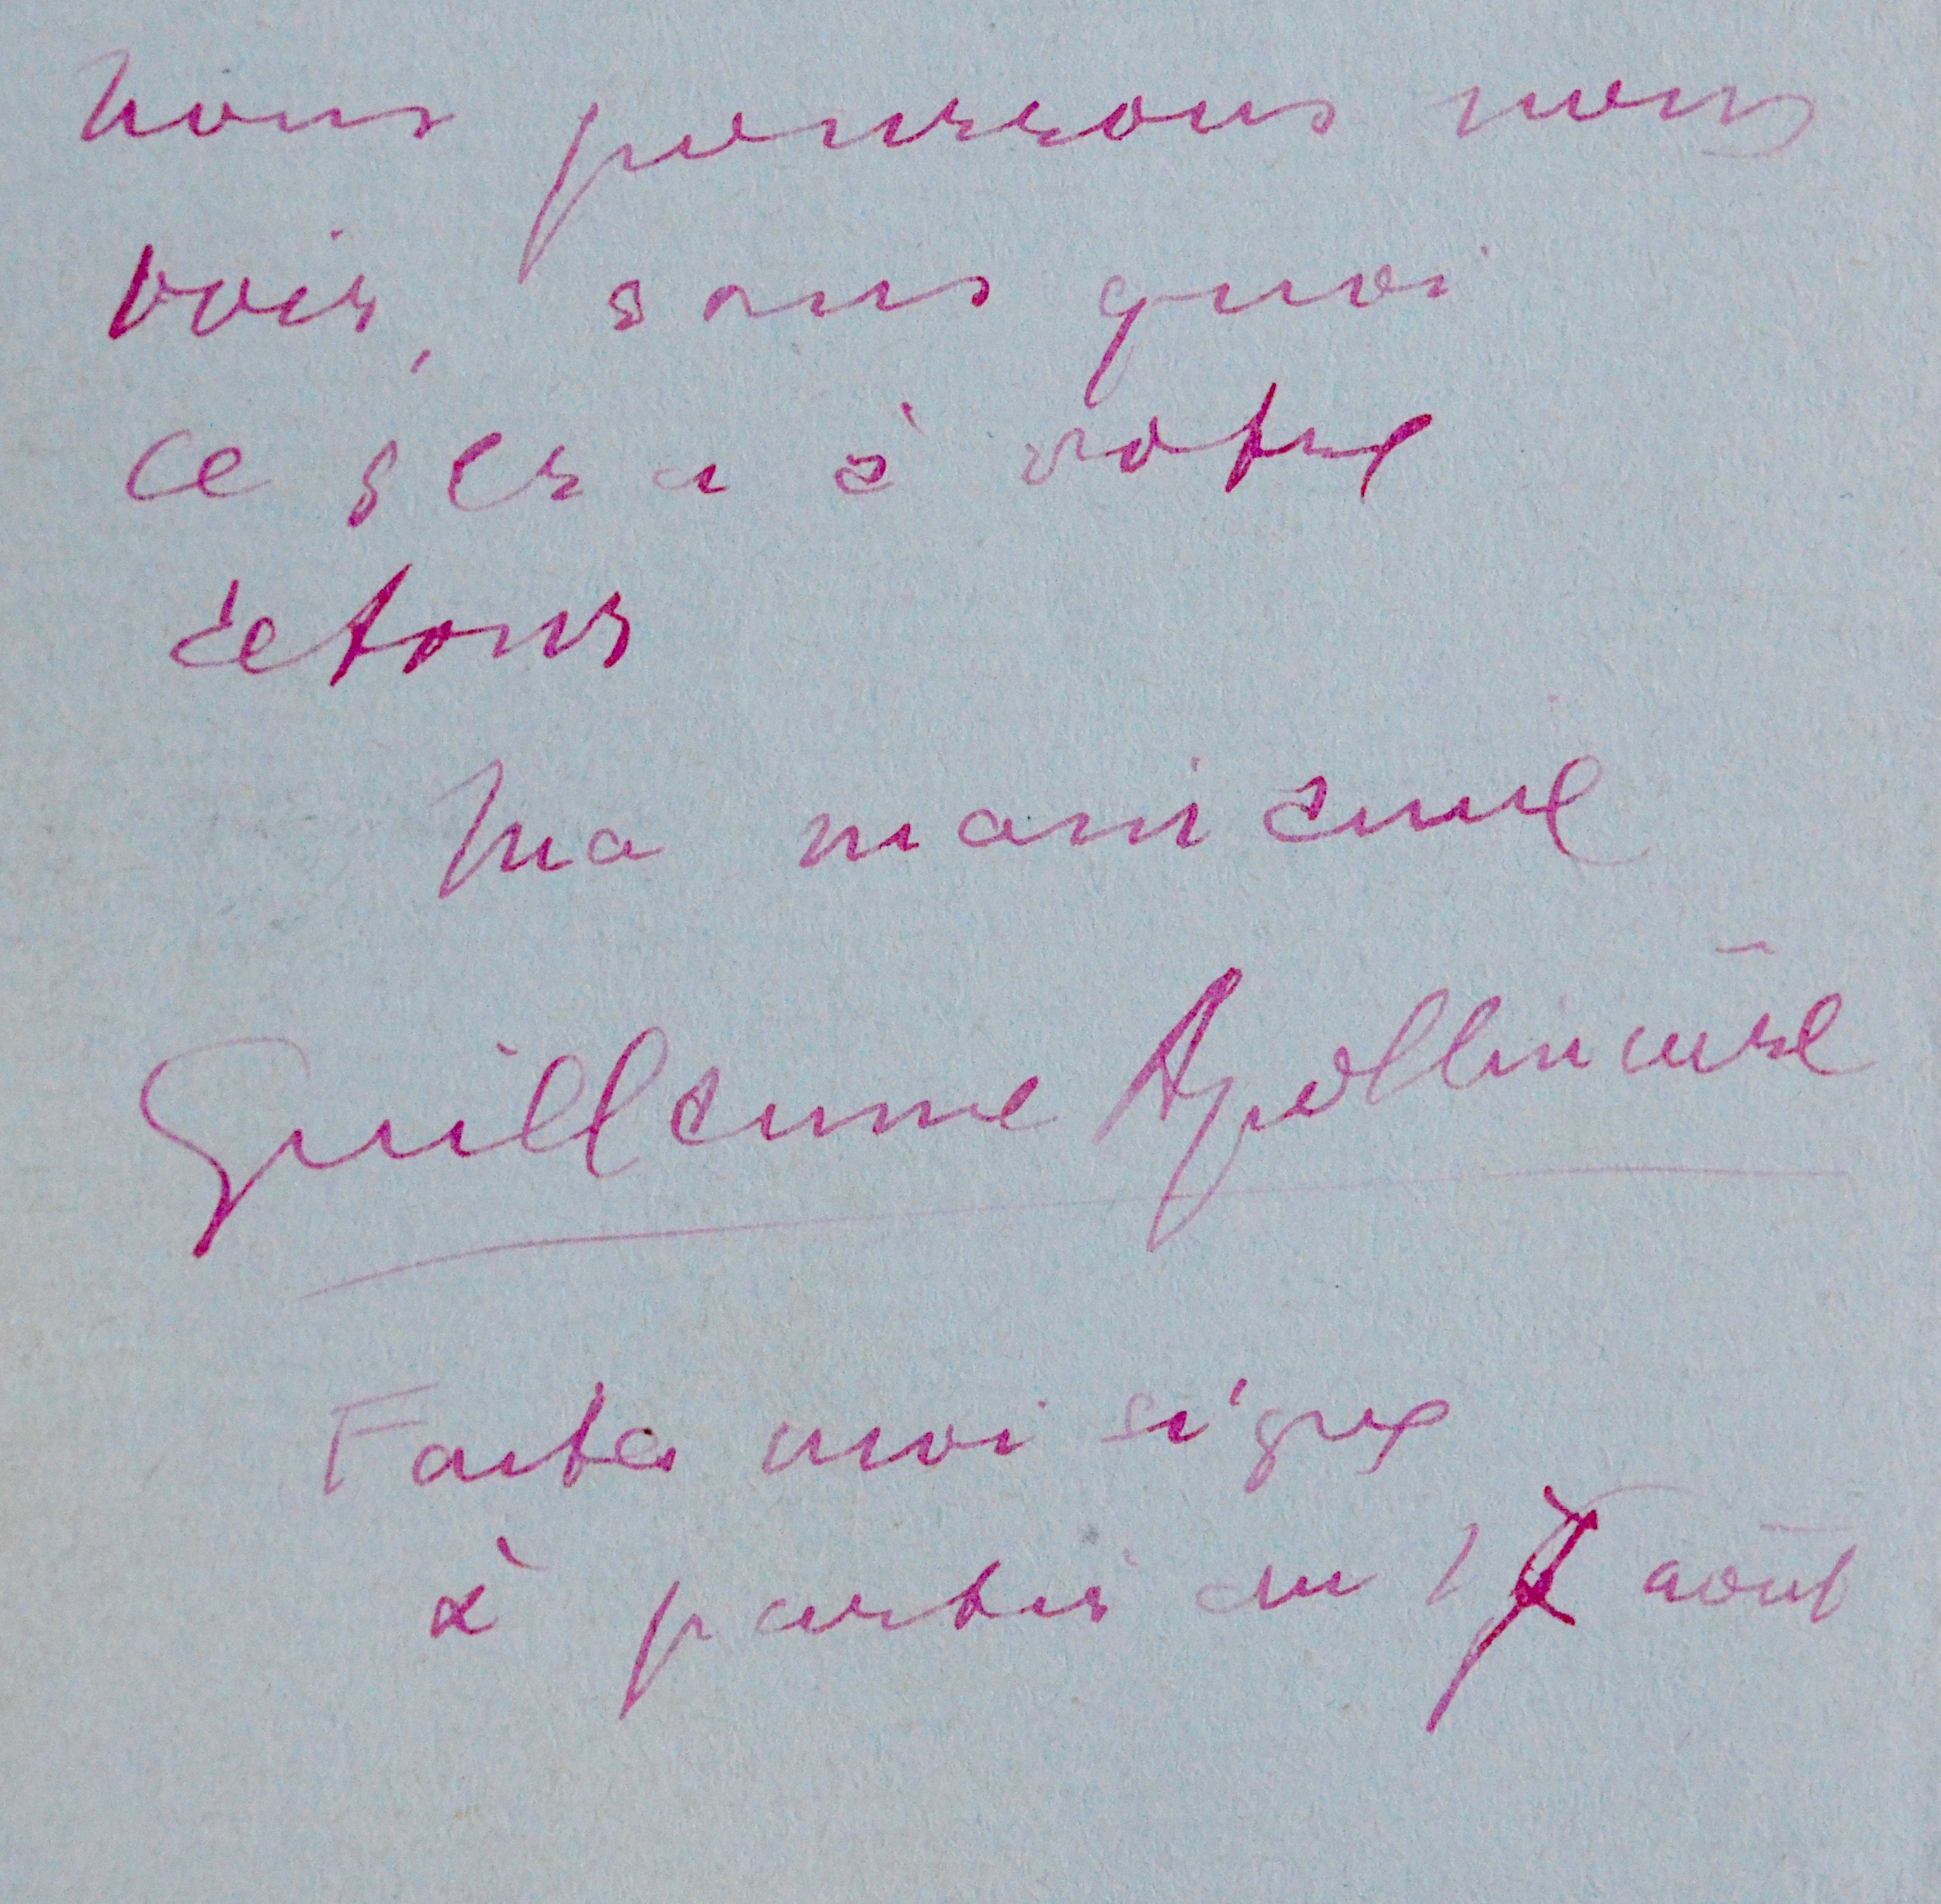 Nous pourrons nous
voir, sans quoi
ce sera à votre
retour
Ma main amie
Guillaume Apollinaire
Faites moi signe
à partir du août